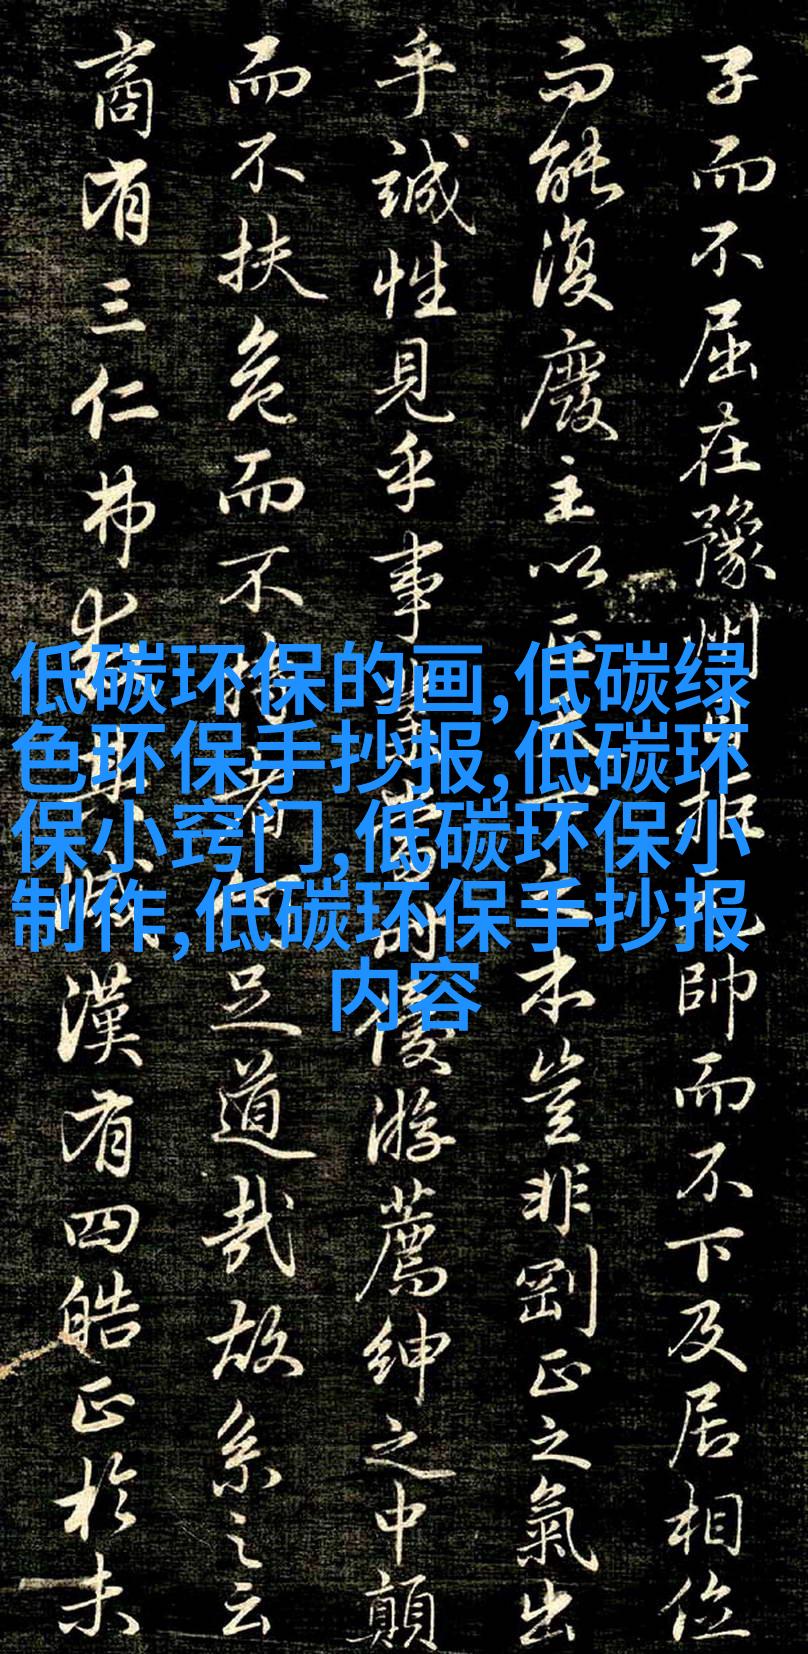 低碳环保的画,低碳绿
色环保手抄报,低碳环
保小窍门,低碳环保小
制作,低碳环保手抄报
内容
子而不屈在豫州拒元帥而不下及居相位
而能復廢主以正天下之本豈非剛正之氣出
乎誠性見乎事業當時優游薦紳之中顛
而不扶危而不持者何足道哉故系之云
商有三仁弗其漢有四皓正於未